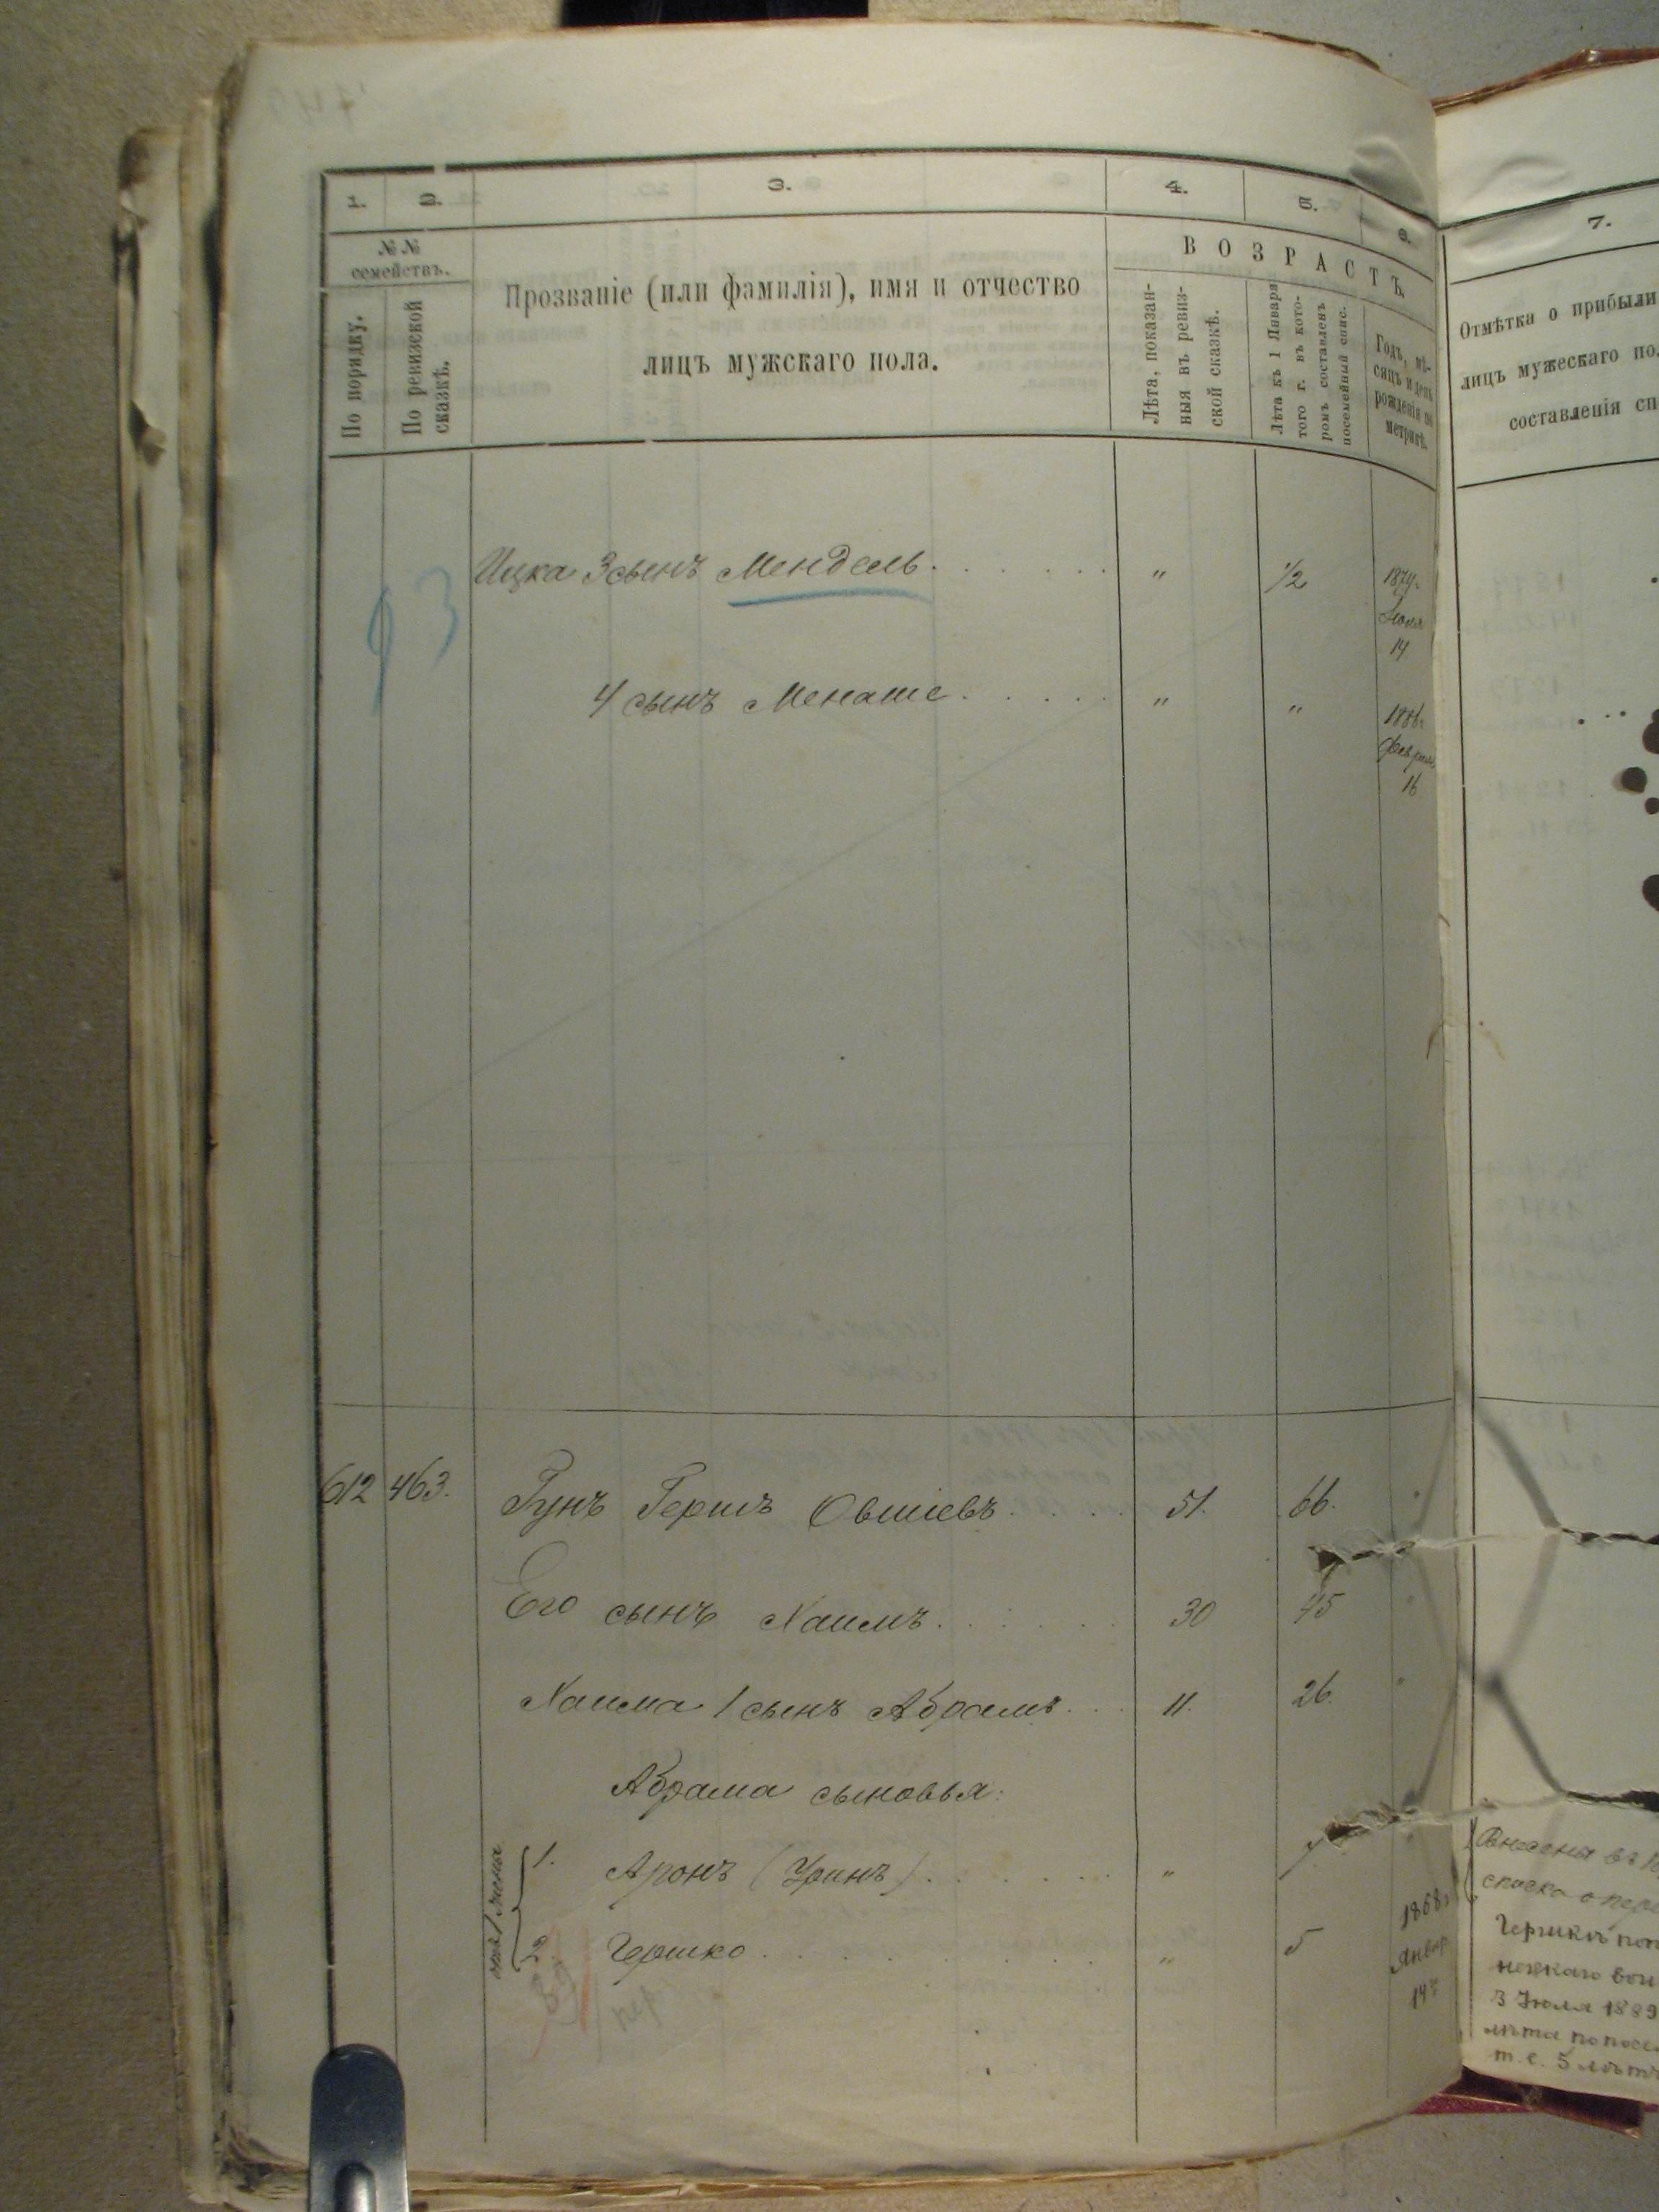 1. 2. 3. 4. 5. 6.
№ № семействъ.
По порядку.
По ревизской сказкѣ.
Прозваніе (или фамилія), имя и отчество
лицъ мужскаго пола.
ВОЗРАСТЪ.
Лѣта, показан-
ныя въ ревиз-
ской сказкѣ.
Лѣта къ 1 Января
того г. въ кото-
ромъ составленъ
посемейный спис.
Годъ, мѣ-
сяцъ и день
рожденія по
метрикѣ.
93
Ицка 3 сынъ Мендель " 1/2 1874.
Іюня
14
4 сынъ Менаше " "
Феврал.
16
612 463. Гунъ Гершъ Овшіевъ 51. 66.
Его сынъ Хаимъ 30 45
Хаима 1 сынъ Абрамъ 11. 26.
Абрама сыновья:
1. Аронъ "
2. Гершко " 5 1868
Январ
14
7.
Отмѣтка о прибыли
лицъ мужескаго по
составленія сп
Внесены въ
списка о пере
Гершко
3 Іюля 1889
лѣта по посе
т. е. 5 лѣтъ